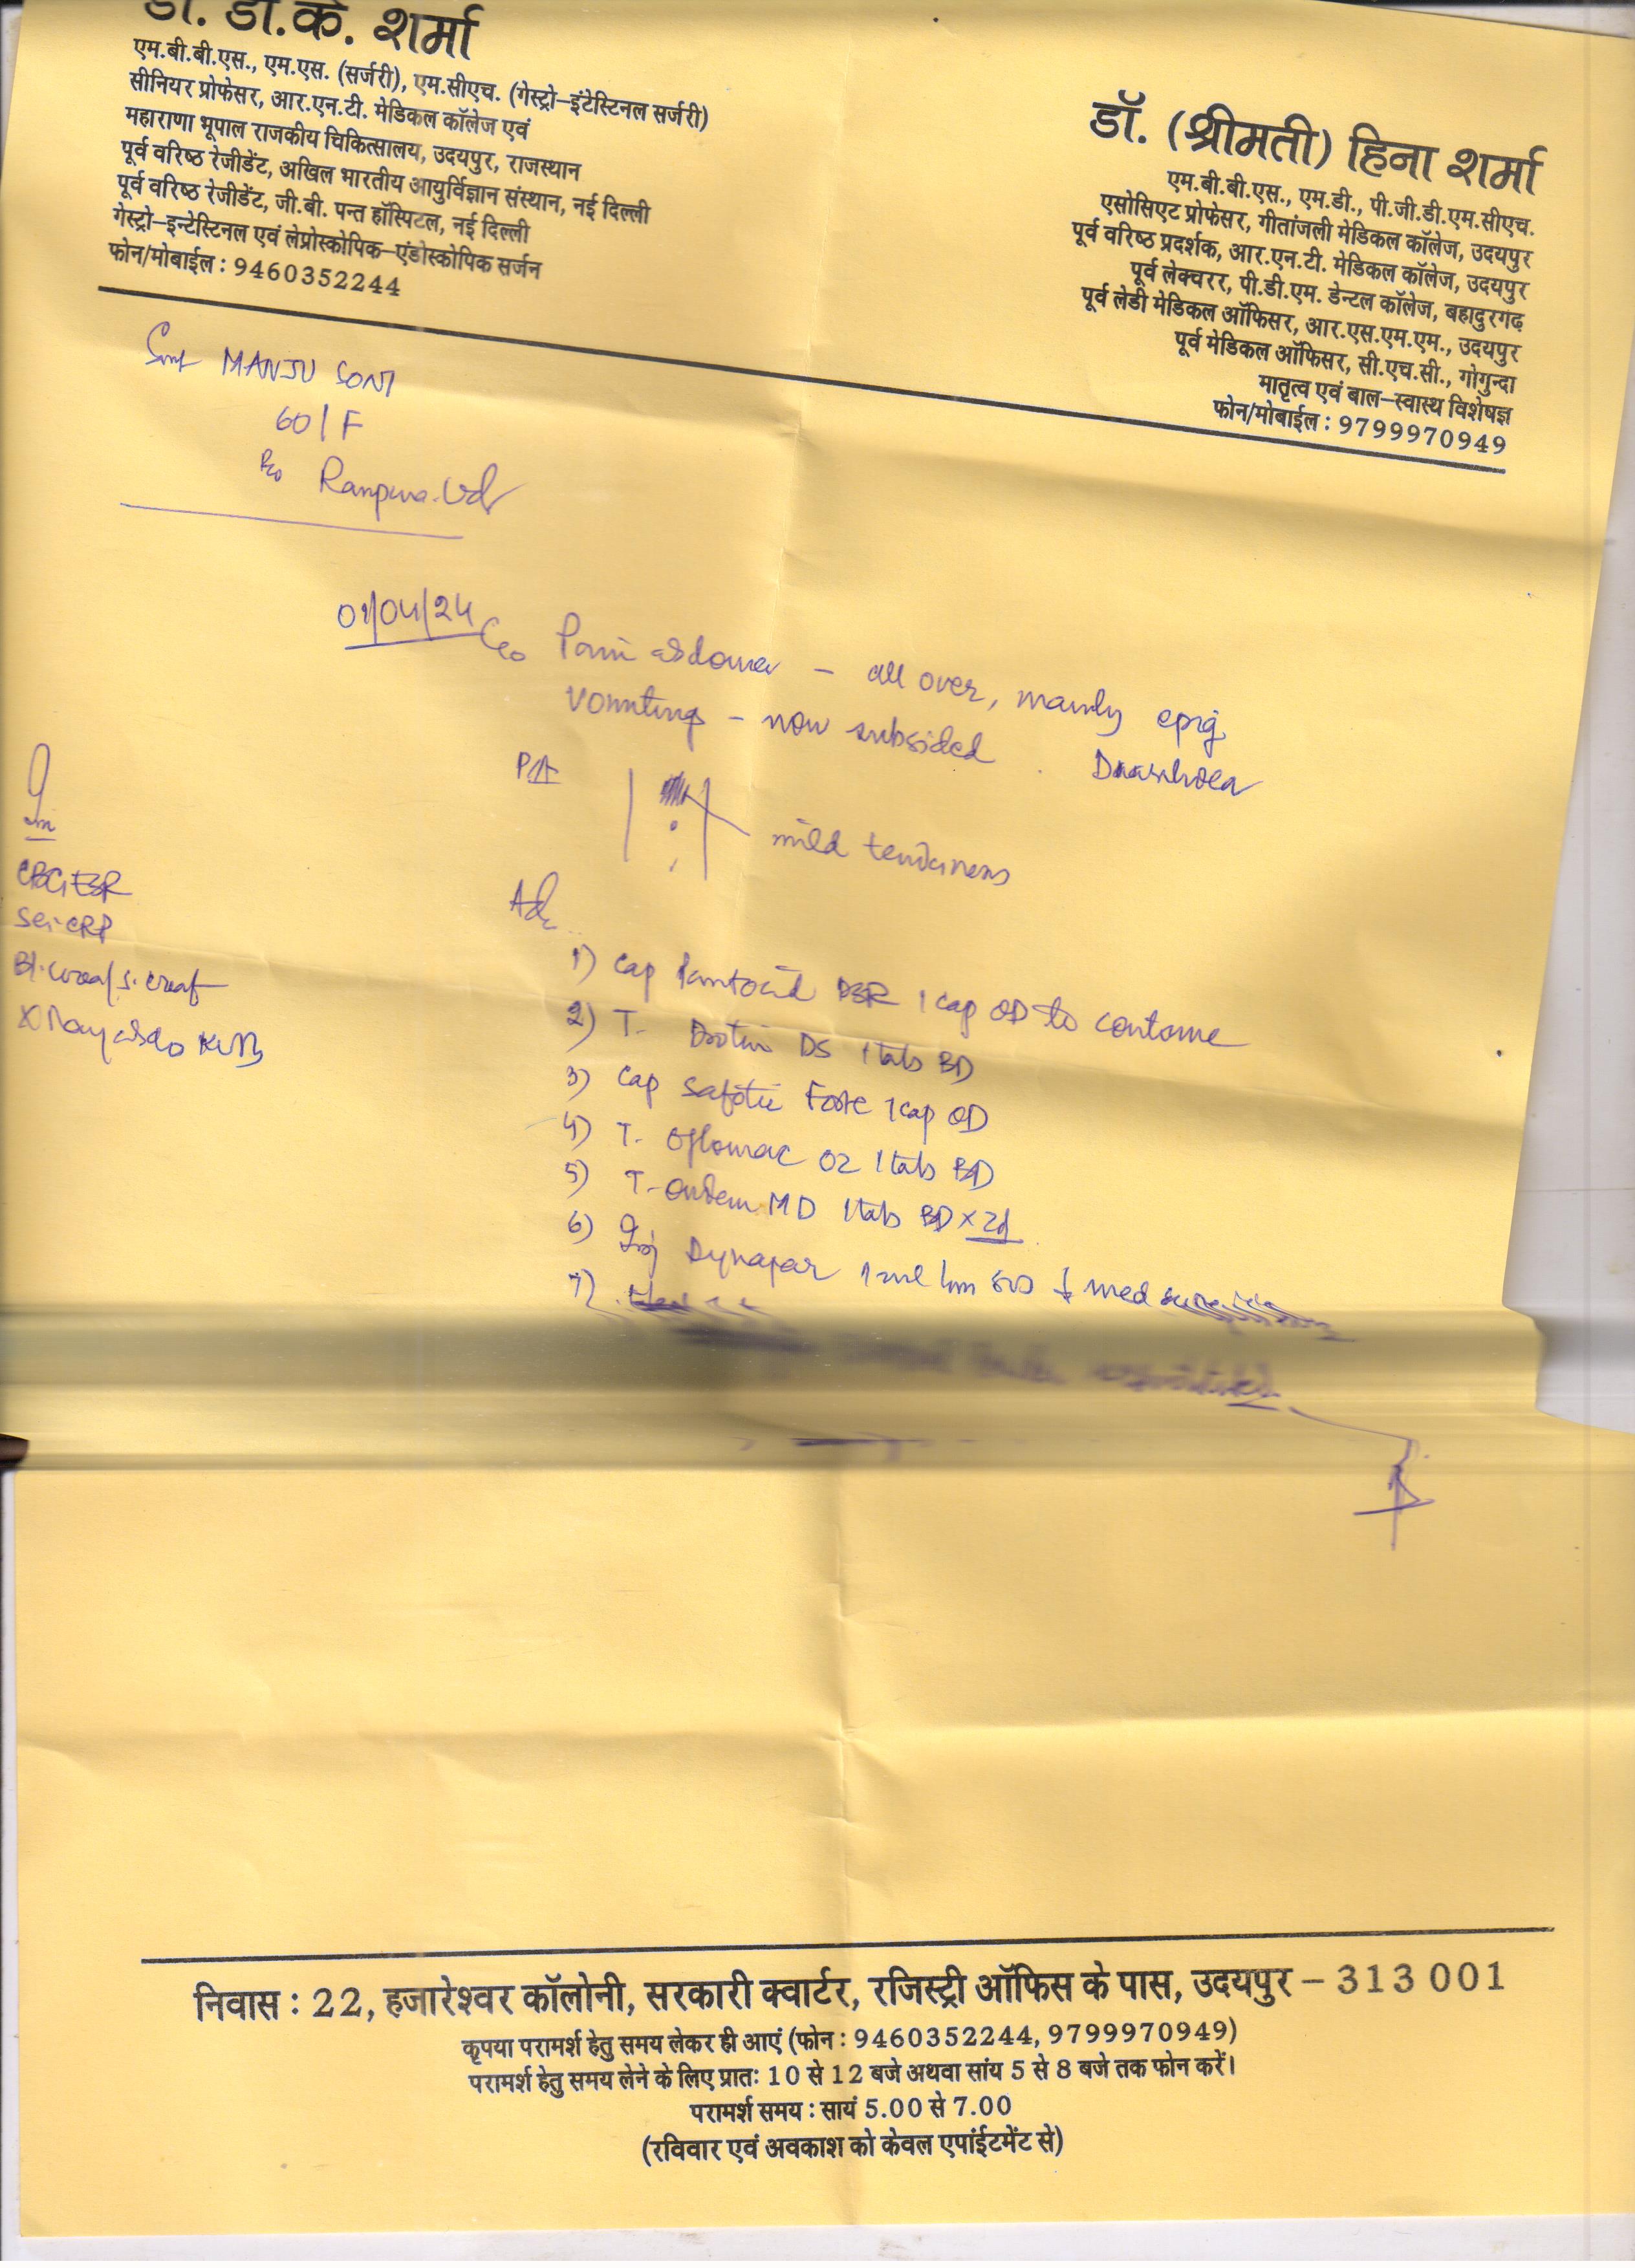 डॉ. डी.के. शर्मा
एम.बी.बी.एस., एम.एस. (सर्जरी), एम.सीएच. (गेस्ट्रो–इंटेस्टिनल सर्जरी)
सीनियर प्रोफेसर, आर.एन.टी. मेडिकल कॉलेज एवं
महाराणा भूपाल राजकीय चिकित्सालय, उदयपुर, राजस्थान
पूर्व वरिष्ठ रेजीडेंट, अखिल भारतीय आयुर्विज्ञान संस्थान, नई दिल्ली
पूर्व वरिष्ठ रेजीडेंट, जी.बी. पन्त हॉस्पिटल, नई दिल्ली
गेस्ट्रो–इन्टेस्टिनल एवं लेप्रोस्कोपिक–एंडोस्कोपिक सर्जन
फोन/मोबाईल : 9460352244
डॉ. (श्रीमती) हिना शर्मा
एम.बी.बी.एस., एम.डी., पी.जी.डी.एम.सीएच.
एसोसिएट प्रोफेसर, गीतांजली मेडिकल कॉलेज, उदयपुर
पूर्व वरिष्ठ प्रदर्शक, आर.एन.टी. मेडिकल कॉलेज, उदयपुर
पूर्व लेक्चरर, पी.डी.एम. डेन्टल कॉलेज, बहादुरगढ़
पूर्व लेडी मेडिकल ऑफिसर, आर.एस.एम.एम., उदयपुर
पूर्व मेडिकल ऑफिसर, सी.एच.सी., गोगुन्दा
मातृत्व एवं बाल–स्वास्थ विशेषज्ञ
फोन/मोबाईल : 9799970949
Smt MANJU SONI
60/F
R/o Rampura. Ud
01/04/24 C/o Pain abdomen – all over, mainly epig
Vomiting – now subsided. Diarrhoea
P/A
mild tenderness
CBC, ESR
Se. CRP
Bl. urea/ S. creat
X Ray abdo KUB
Adv
1) Cap Pantocid DSR 1 cap OD to continue
2) T. Drotin DS 1 tab BD
3) Cap Safotic Forte 1 cap OD
4) T. Oflomac OZ 1 tab BD
5) T. Ondem MD 1 tab BD x 2d
6) Inj Dynapar 1 ml Im SOS med
7)
निवास : 22, हजारेश्वर कॉलोनी, सरकारी क्वार्टर, रजिस्ट्री ऑफिस के पास, उदयपुर – 313 001
कृपया परामर्श हेतु समय लेकर ही आएं (फोन : 9460352244, 9799970949)
परामर्श हेतु समय लेने के लिए प्रातः 10 से 12 बजे अथवा सांय 5 से 8 बजे तक फोन करें।
परामर्श समय : सायं 5.00 से 7.00
(रविवार एवं अवकाश को केवल एपांईटमेंट से)